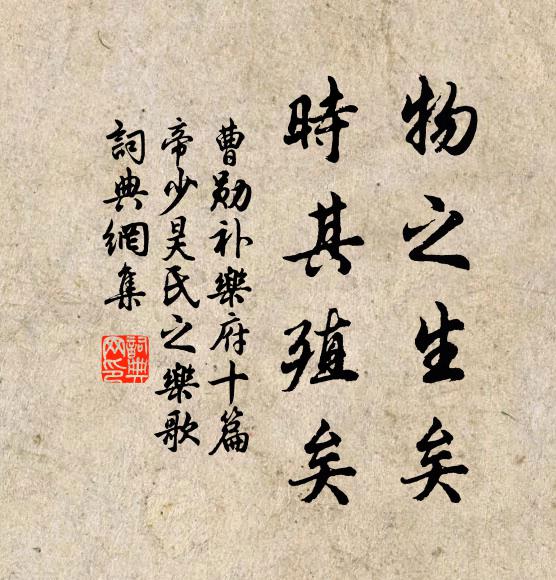 物之生矣
時其殖矣
曹勛补樂府十篇
帝少昊氏之樂歌
詞典網集
詞典网印